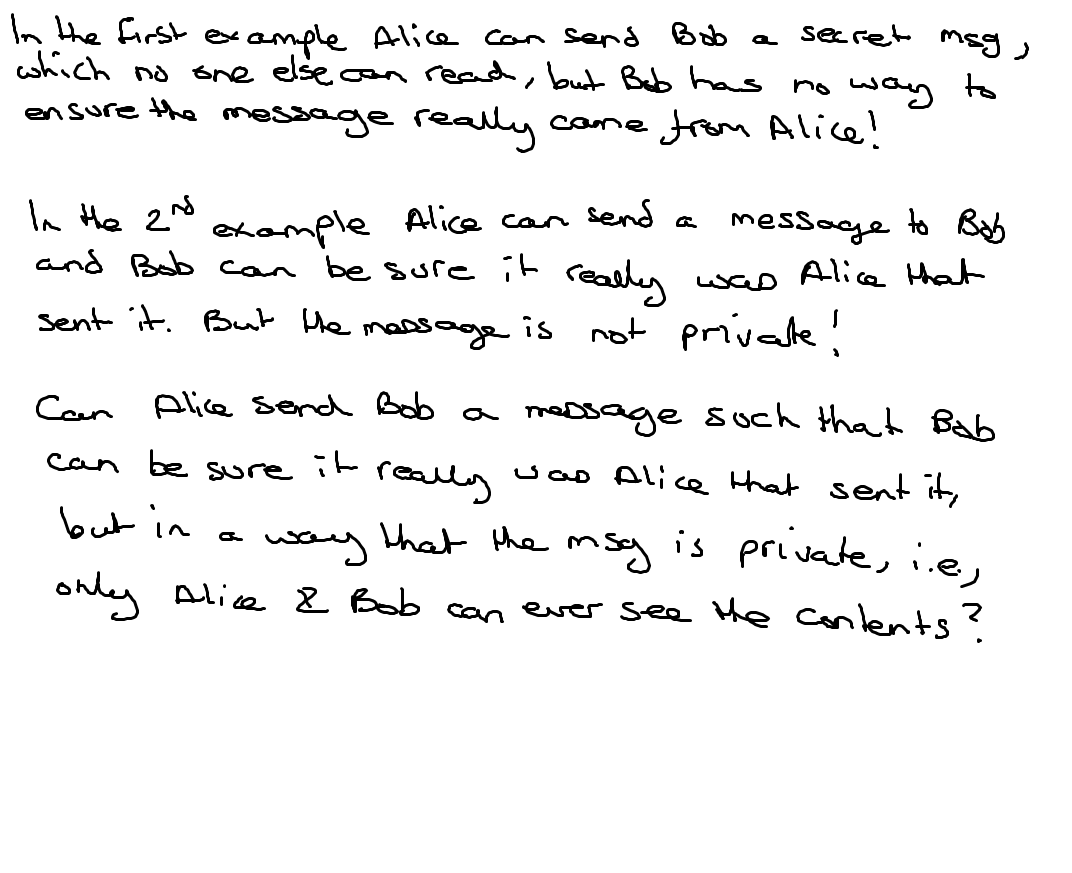 In the first example Alice can send Bob a secret msg,
which no one else can read, but Bob has no way to
ensure the message really came from Alice!
In the 2nd example Alice can send a message to Bob
and Bob can be sure it really was Alice that
sent it. But the message is not private!
Can Alice send Bob a message such that Bob
can be sure it really was Alice that sent it,
but in a way that the msg is private, i.e.,
only Alice & Bob can ever see the contents?